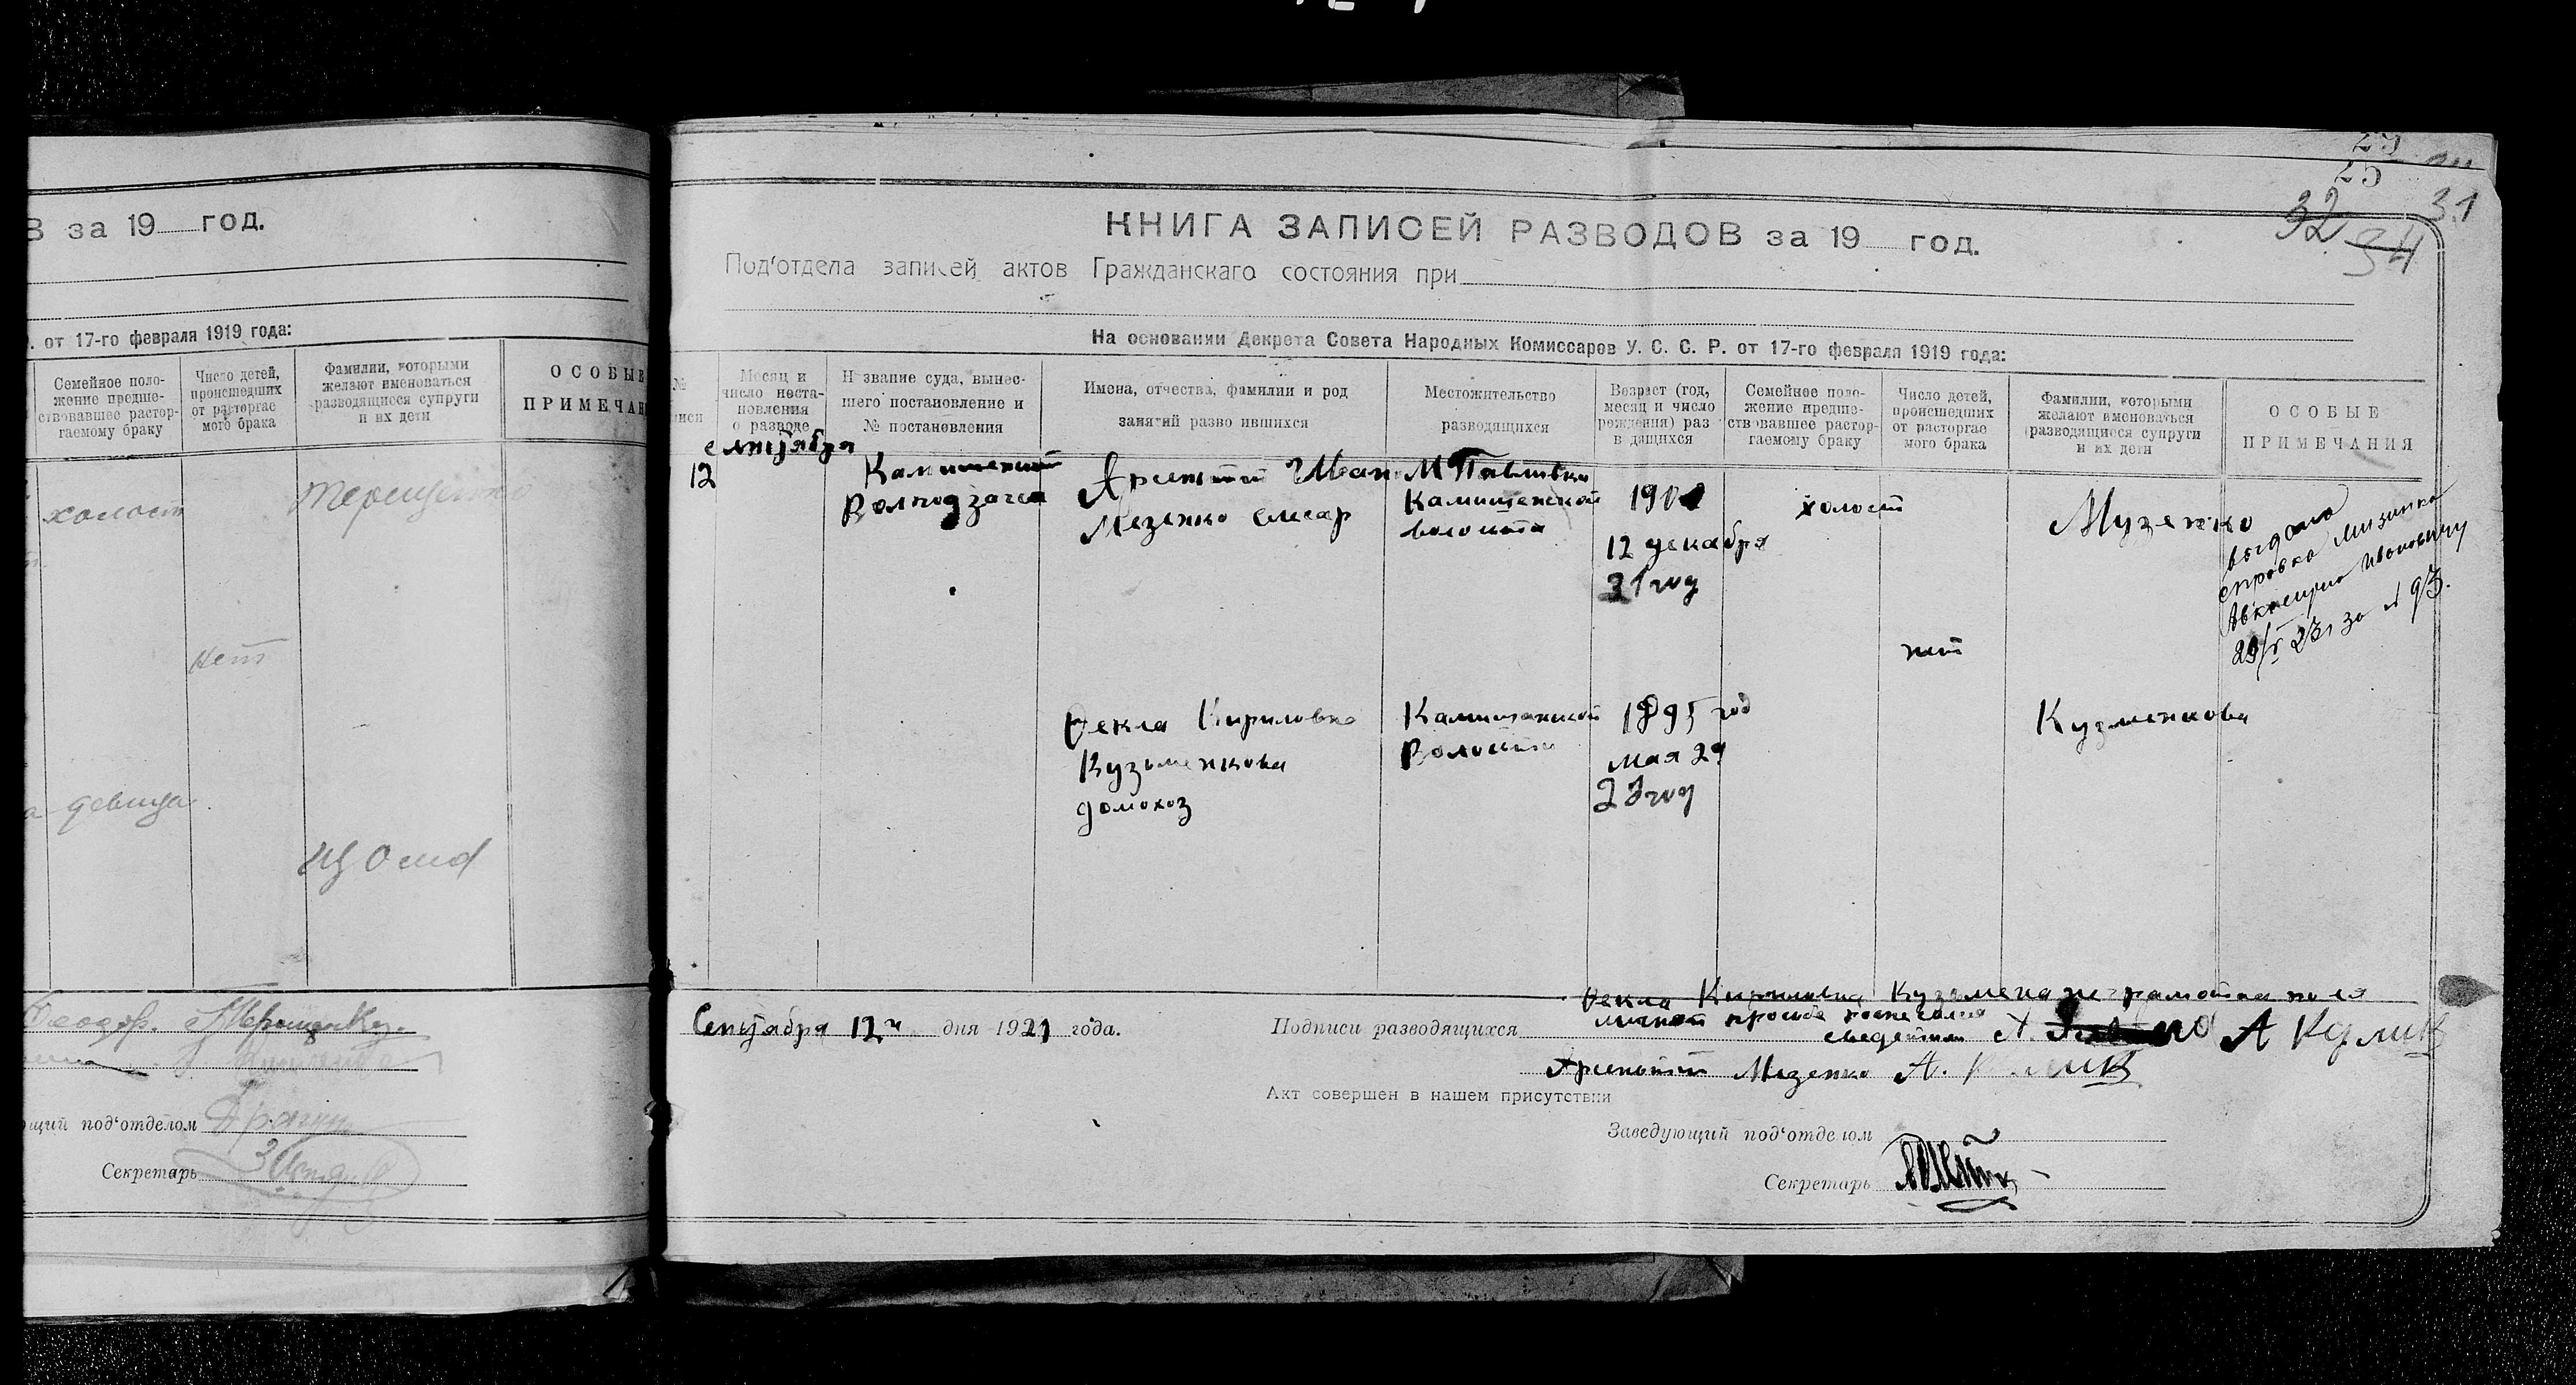 В за 19 год.
. от 17-го февраля 1919 года:
Семейное поло-
жение предше-
ствовавшее растор-
гаемому браку
Число детей,
происшедших
от расторгае
мого брака
Фамилии, которыми
желают именоваться
разводящиеся супруги
и их дети
ОСОБЫЕ
ПРИМЕЧАН
холост
Терещенко
нет
девица
щий под'отделом
Секретарь
25
25
32 34 31
КНИГА ЗАПИСЕЙ РАЗВОДОВ за 19 год.
Под'отдела записей актов Гражданскаго состояния при
На основании Декрета Совета Народных Комиссаров У. С. С. Р. от 17-го февраля 1919 года:
№
писи
Месяц и
число поста-
новления
о разводе
Н звание суда, вынес-
шего постановление и
№ постановления
Имена, отчества, фамилии и род
занятий разво ившихся
Местожительство
разводящихся
Возраст (год,
месяц и число
рождения) раз
в дящихся
Семейное поло-
жение предше-
ствовавшее растор-
гаемому браку
Число детей,
происшедших
от расторгае
мого брака
Фамилии, которыми
желают именоваться
(разводящиеся супруги
и их дети
ОСОБЫЕ
ПРИМЕЧАНИЯ
12
Арсентий Иван
Мезенко слесар
М Павливка
Камишенской
волости
190
12 декабря
21 год
холост
Музенко
выдана
справка Мизинко
Ивановичу
23 за № 93.
нет
Фекла Кириловна
Кузьменкова
домохоз
Камишанской
Волости
1895 год
мая 29
23 год
Кузменкова
Сентября 12 дня 1921 года.
Подписи разводящихся
Фекла Кириловна Кузьмена неграмотна по ея
личной просьбе
А Кулик
Арсентий Мезенко А.
Акт совершен в нашем присутствии
Заведующий под'отде юм
Секретарь